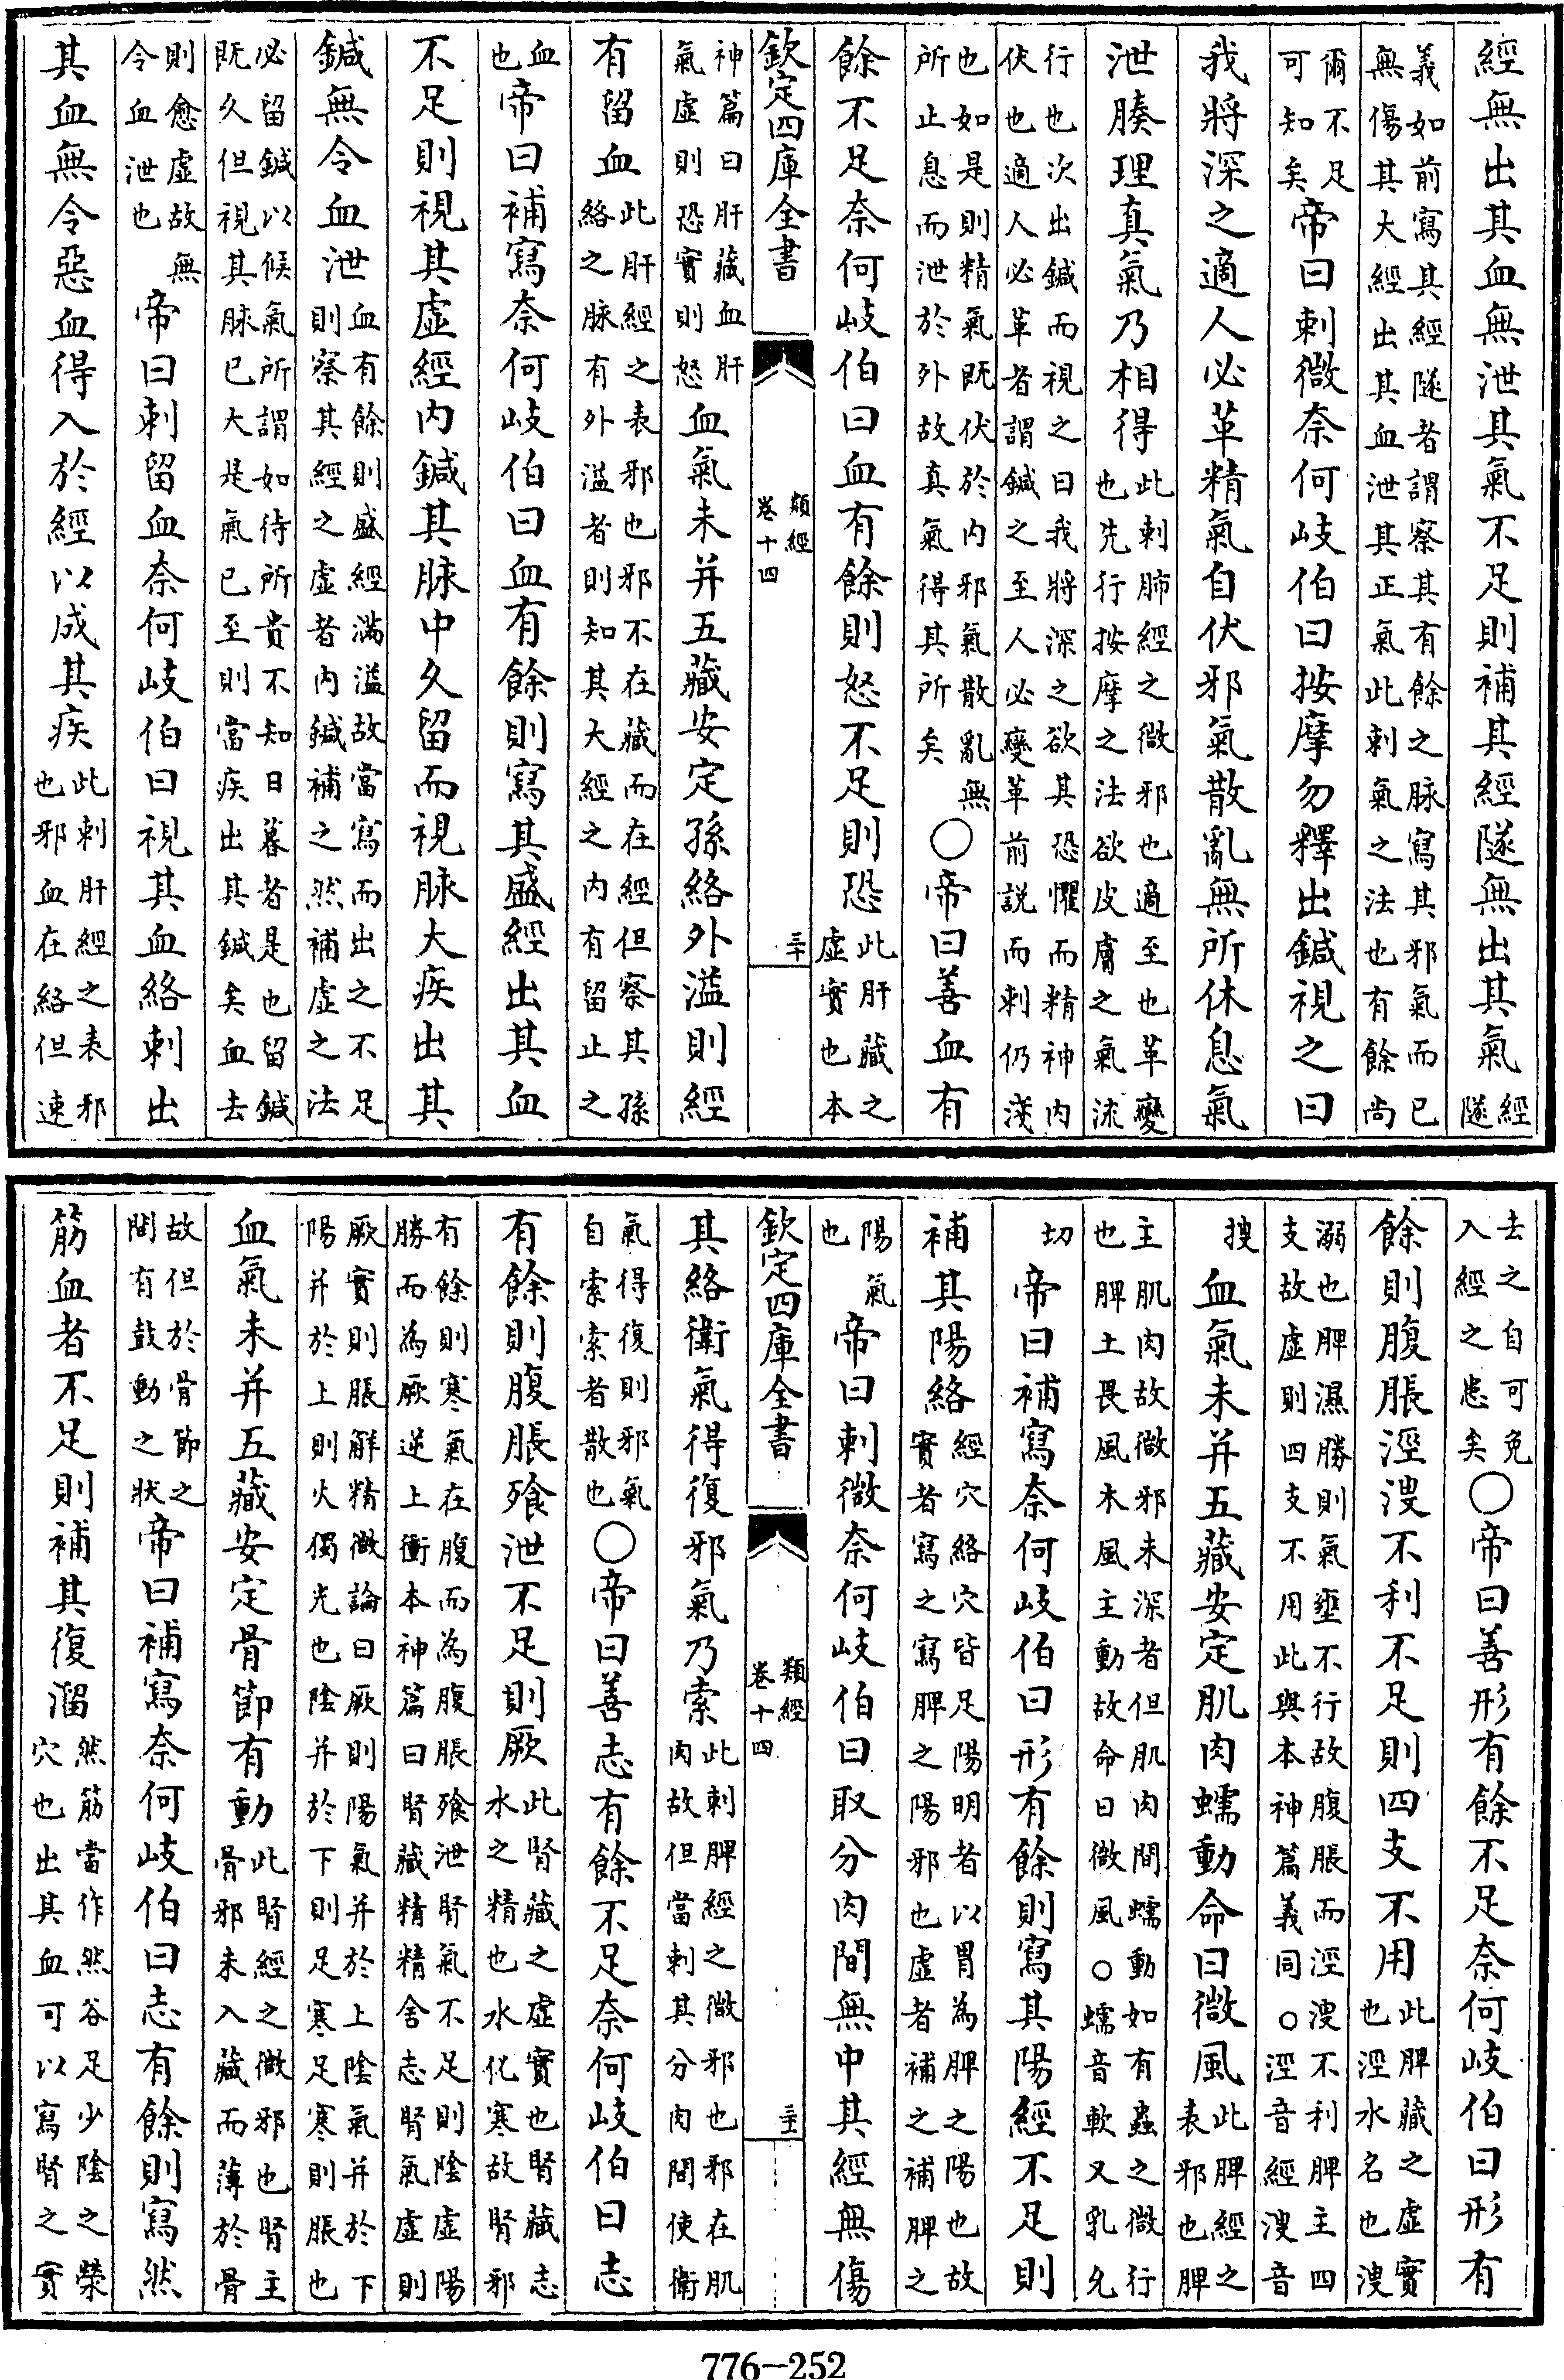 經無出其血無泄其氣不足則補其經隧無出其氣經隧
義如前寫其經隧者謂察其有餘之脉寫其邪氣而已無傷其大經出其血泄其正氣此刺氣之法也有餘尚
爾不足可知矣帝曰刺微奈何岐伯曰按摩勿釋出鍼視之曰
我將深之適人必革精氣自伏邪氣散亂無所休息氣
泄腠理真氣乃相得此刺肺經之微邪也適至也革變也先行按摩之法欲皮膚之氣流
行也次出鍼而視之曰我將深之欲其恐懼而精神内伏也適人必革者謂鍼之至人必變革前説而刺仍淺
也如是則精氣既伏於内邪氣散亂無所止息而泄於外故真氣得其所矣○帝曰善血有
餘不足奈何岐伯曰血有餘則怒不足則恐此肝藏之虚實也本
欽定四庫全書 類經 卷十四 三十
神篇曰肝藏血肝氣虚則恐實則怒血氣未并五藏安定孫絡外溢則經
有留血此肝經之表邪也邪不在藏而在經但察其孫絡之脉有外溢者則知其大經之内有留止之
血也帝曰補寫奈何岐伯曰血有餘則寫其盛經出其血
不足則視其虚經内鍼其脉中久留而視脉大疾出其
鍼無令血泄血有餘則盛經滿溢故當寫而出之不足則察其經之虚者内鍼補之然補虚之法
必留鍼以候氣所謂如待所貴不知日暮者是也留鍼既久但視其脉已大是氣已至則當疾出其鍼矣血去
則愈虚故無令血泄也帝曰刺留血奈何岐伯曰視其血絡刺出
其血無令惡血得入於經以成其疾此刺肝經之表邪也邪血在絡但速
去之自可免入經之患矣○帝曰善形有餘不足奈何岐伯曰形有
餘則腹脹涇溲不利不足則四支不用此脾藏之虚實也涇水名也溲
溺也脾濕勝則氣壅不行故腹脹而涇溲不利脾主四支故虚則四支不用此與本神篇義同○涇音經溲音
搜血氣未并五藏安定肌肉蠕動命曰微風此脾經之表邪也脾
主肌肉故微邪未深者但肌肉間蠕動如有蟲之微行也脾土畏風木風主動故命曰微風○蠕音軟又乳允
切帝曰補寫奈何岐伯曰形有餘則寫其陽經不足則
補其陽絡經穴絡穴皆足陽明者以胃為脾之陽也故實者寫之寫脾之陽邪也虚者補之補脾之
陽氣也帝曰刺微奈何岐伯曰取分肉間無中其經無傷
欽定四庫全書 類經 卷十四 三十一
其絡衛氣得復邪氣乃索此刺脾經之微邪也邪在肌肉故但當刺其分肉間使衛
氣得復則邪氣自索索者散也○帝曰善志有餘不足奈何岐伯曰志
有餘則腹脹飱泄不足則厥此腎藏之虚實也腎藏志水之精也水化寒故腎邪
有餘則寒氣在腹而為腹脹飱泄腎氣不足則陰虚陽勝而為厥逆上衝本神篇曰腎藏精精舍志腎氣虚則
厥實則脹解精微論曰厥則陽氣并於上陰氣并於下陽并於上則火獨光也陰并於下則足寒足寒則脹也
血氣未并五藏安定骨節有動此腎經之微邪也腎主骨邪未入藏而薄於骨
故但於骨節之間有鼓動之狀帝曰補寫奈何岐伯曰志有餘則寫然
筋血者不足則補其復溜然筋當作然谷足少陰之滎穴也出其血可以寫腎之實
776-252